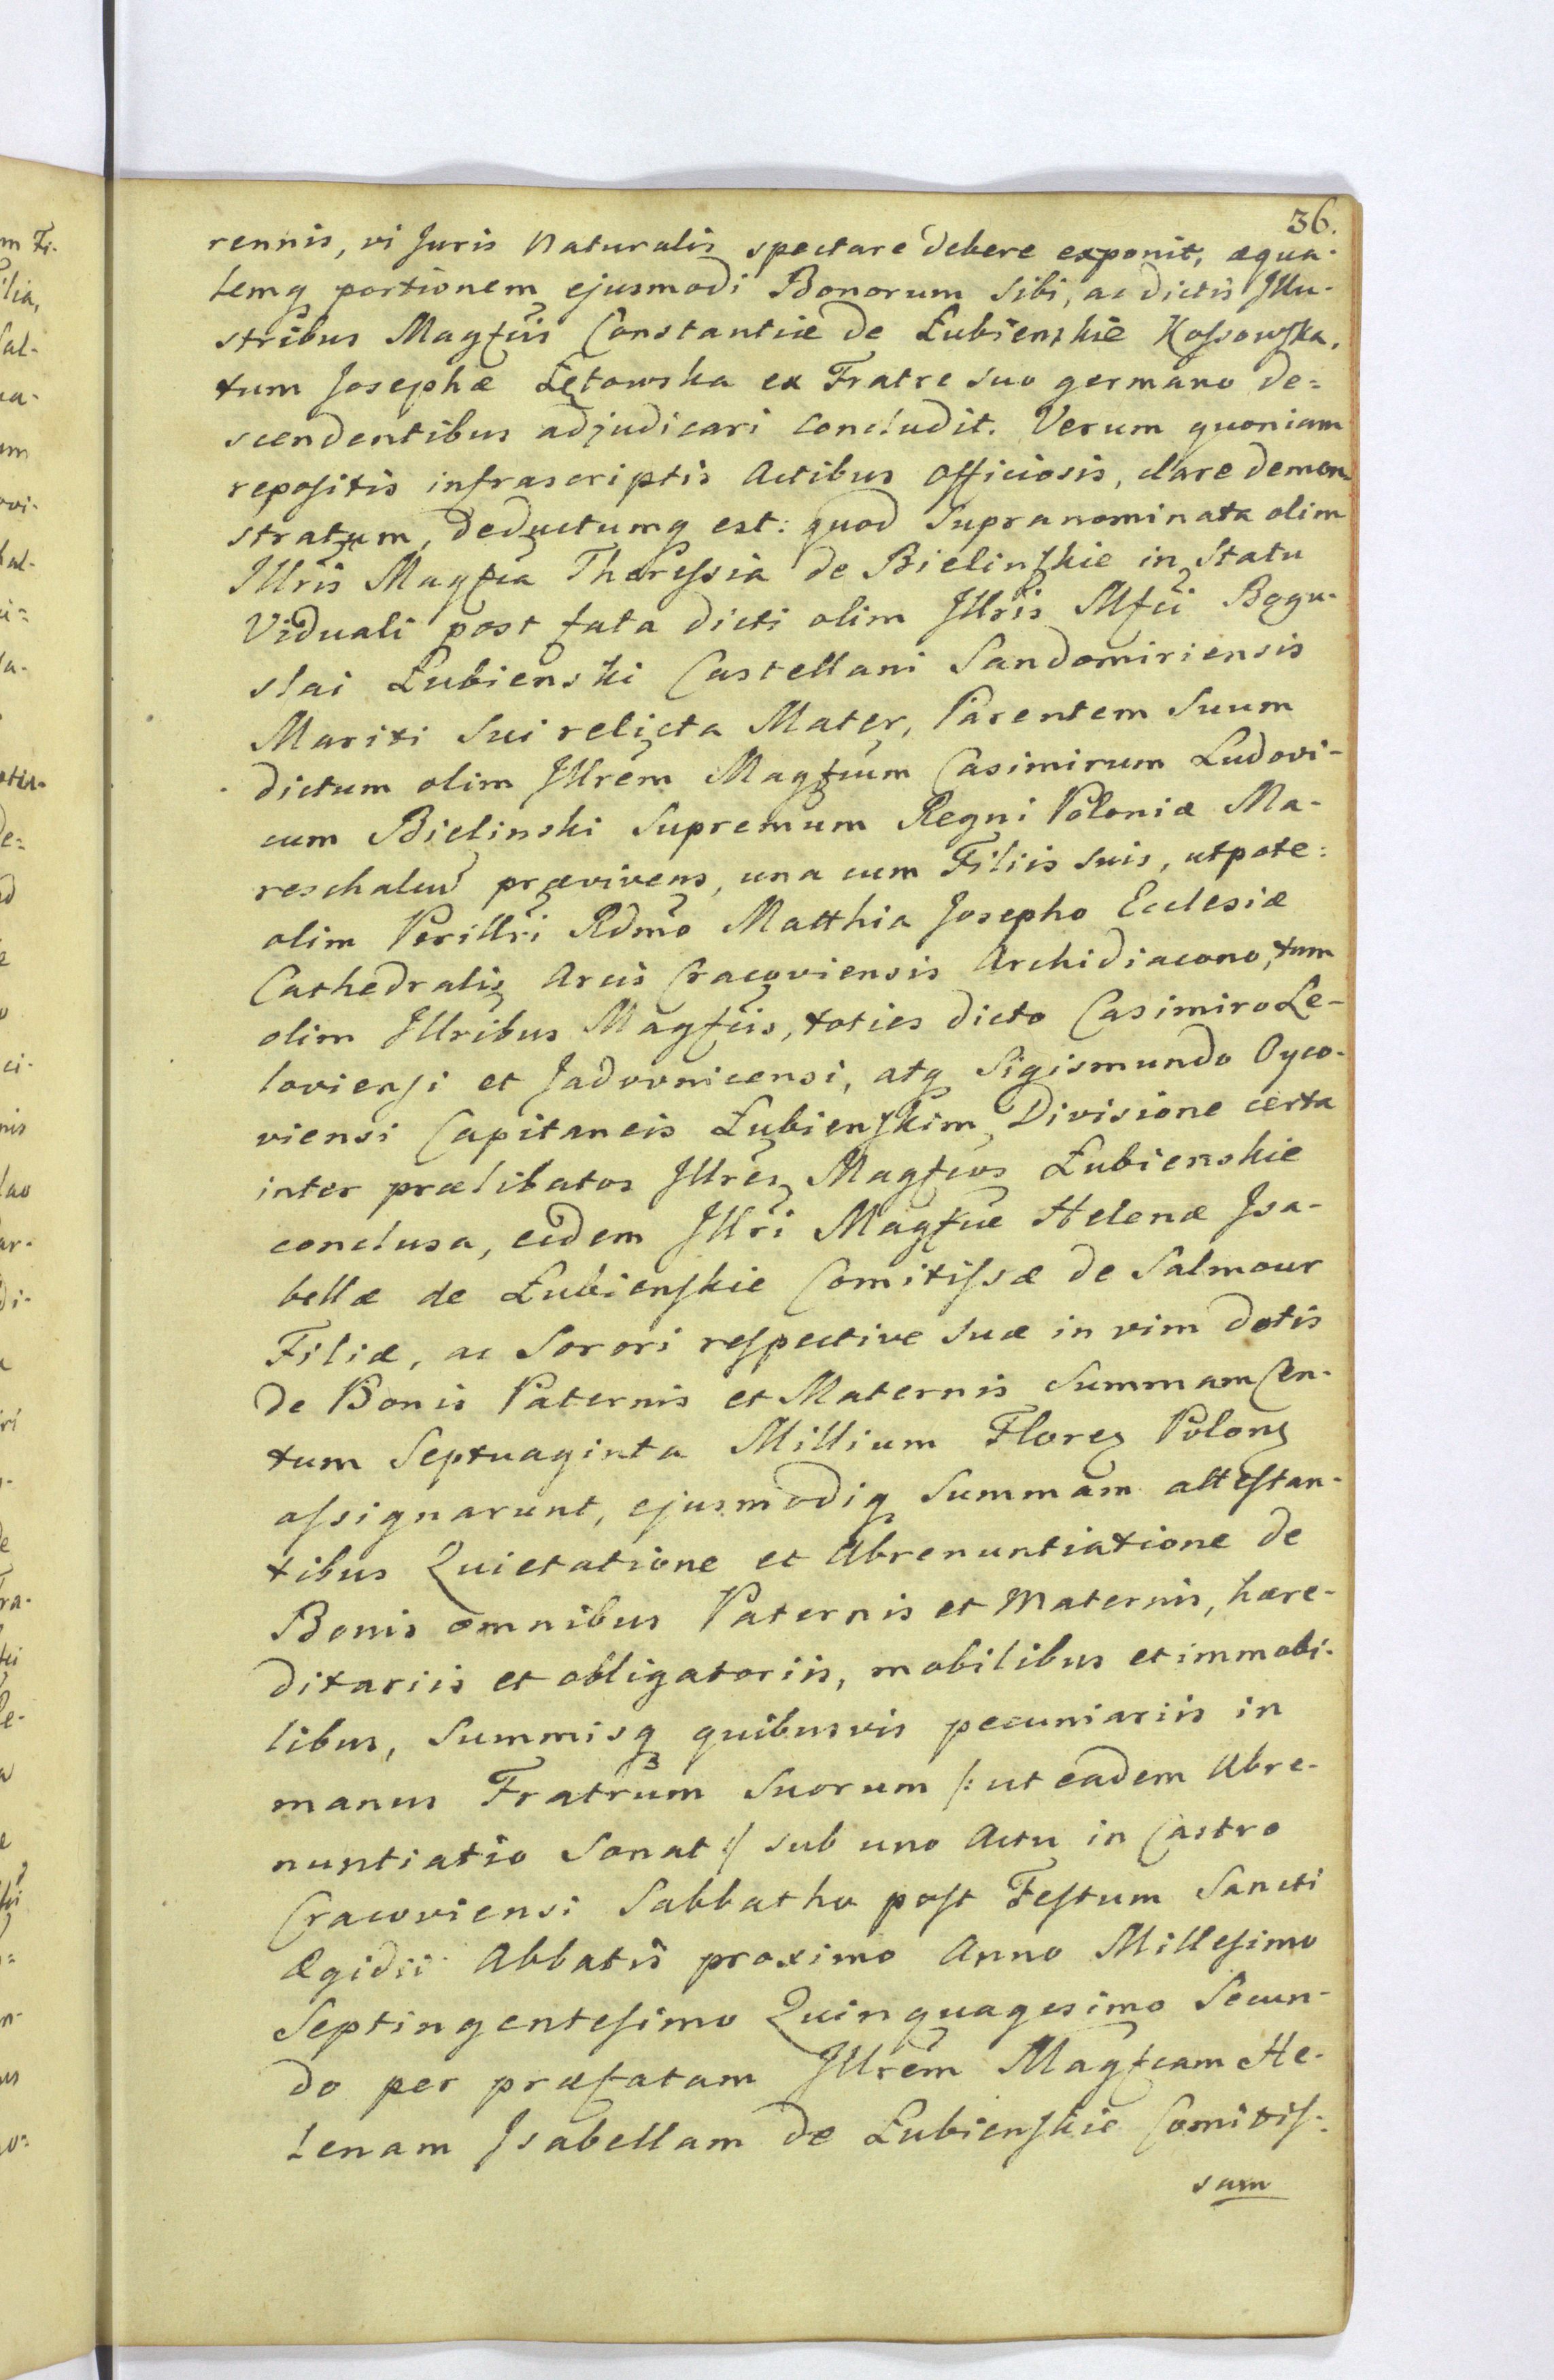 36.
rennis, vi Juris Naturalis spectare debere exponit, æqua-
lemq portionem ejusmodi Bonorum sibi, ac dictis Illu-
stribus Magfcis Constantiæ de Łubienskie Kossowska,
tum Josephæ Łętowska ex Fratre suo germano de=
scendentibus adjudicari concludit. Verum quoniam
repositis infrascriptis Actibus Officiosis, clare demon-
stratum, deductumq est: quod supranominata olim
Illris Magfca Theressia de Bielinskie in statu
Viduali post fata dicti olim Illris Mfci Bogu-
slai Łubienski Castellani Sandomiriensis
Mariti sui relicta Mater, Parentem suum
dictum olim Illrem Magfcum Casimirum Ludovi-
cum Bielinski Supremum Regni Poloniæ Ma-
reschalcum prævivens, una cum Filiis suis, utpote:
olim Perillri Rdmo Matthia Josepho Ecclesiæ
Cathedralis Arcis Cracoviensis Archidiacono, tum
olim Illribus Magfcis, toties dicto Casimiro Le-
loviensi et Jadovnicensi, atq Sigismundo Oyco-
viensi Capitaneis Łubienskim, Divisione certa
inter prælibatos Illres Magfcos Łubienskie
conclusa, eidem Illri Magfcæ Helenæ Isa-
bellæ de Łubienskie Comitissæ de Salmour
Filiæ, ac Sorori respective suæ in vim dotis
de Bonis Paternis et Maternis Summam Cen-
tum Septuaginta Millium Floren Polon
assignarunt, ejusmodiq Summam attestan-
tibus Quietatione et Abrenuntiatione de
Bonis omnibus Paternis et Maternis, hære-
ditariis et obligatoriis, mobilibus et immobi-
libus, Summisq quibusvis pecuniariis in
manus Fratrum Suorum /: ut eadem Abre-
nuntiatio sonat :/ sub uno Actu in Castro
Cracoviensi Sabbatho post Festum Sancti
Ægidii Abbatis proximo Anno Millesimo
Septingentesimo Quinquagesimo Secun-
do per præfatam Illrem Magfcam He-
lenam Isabellam de Łubienskie Comitis-
sam